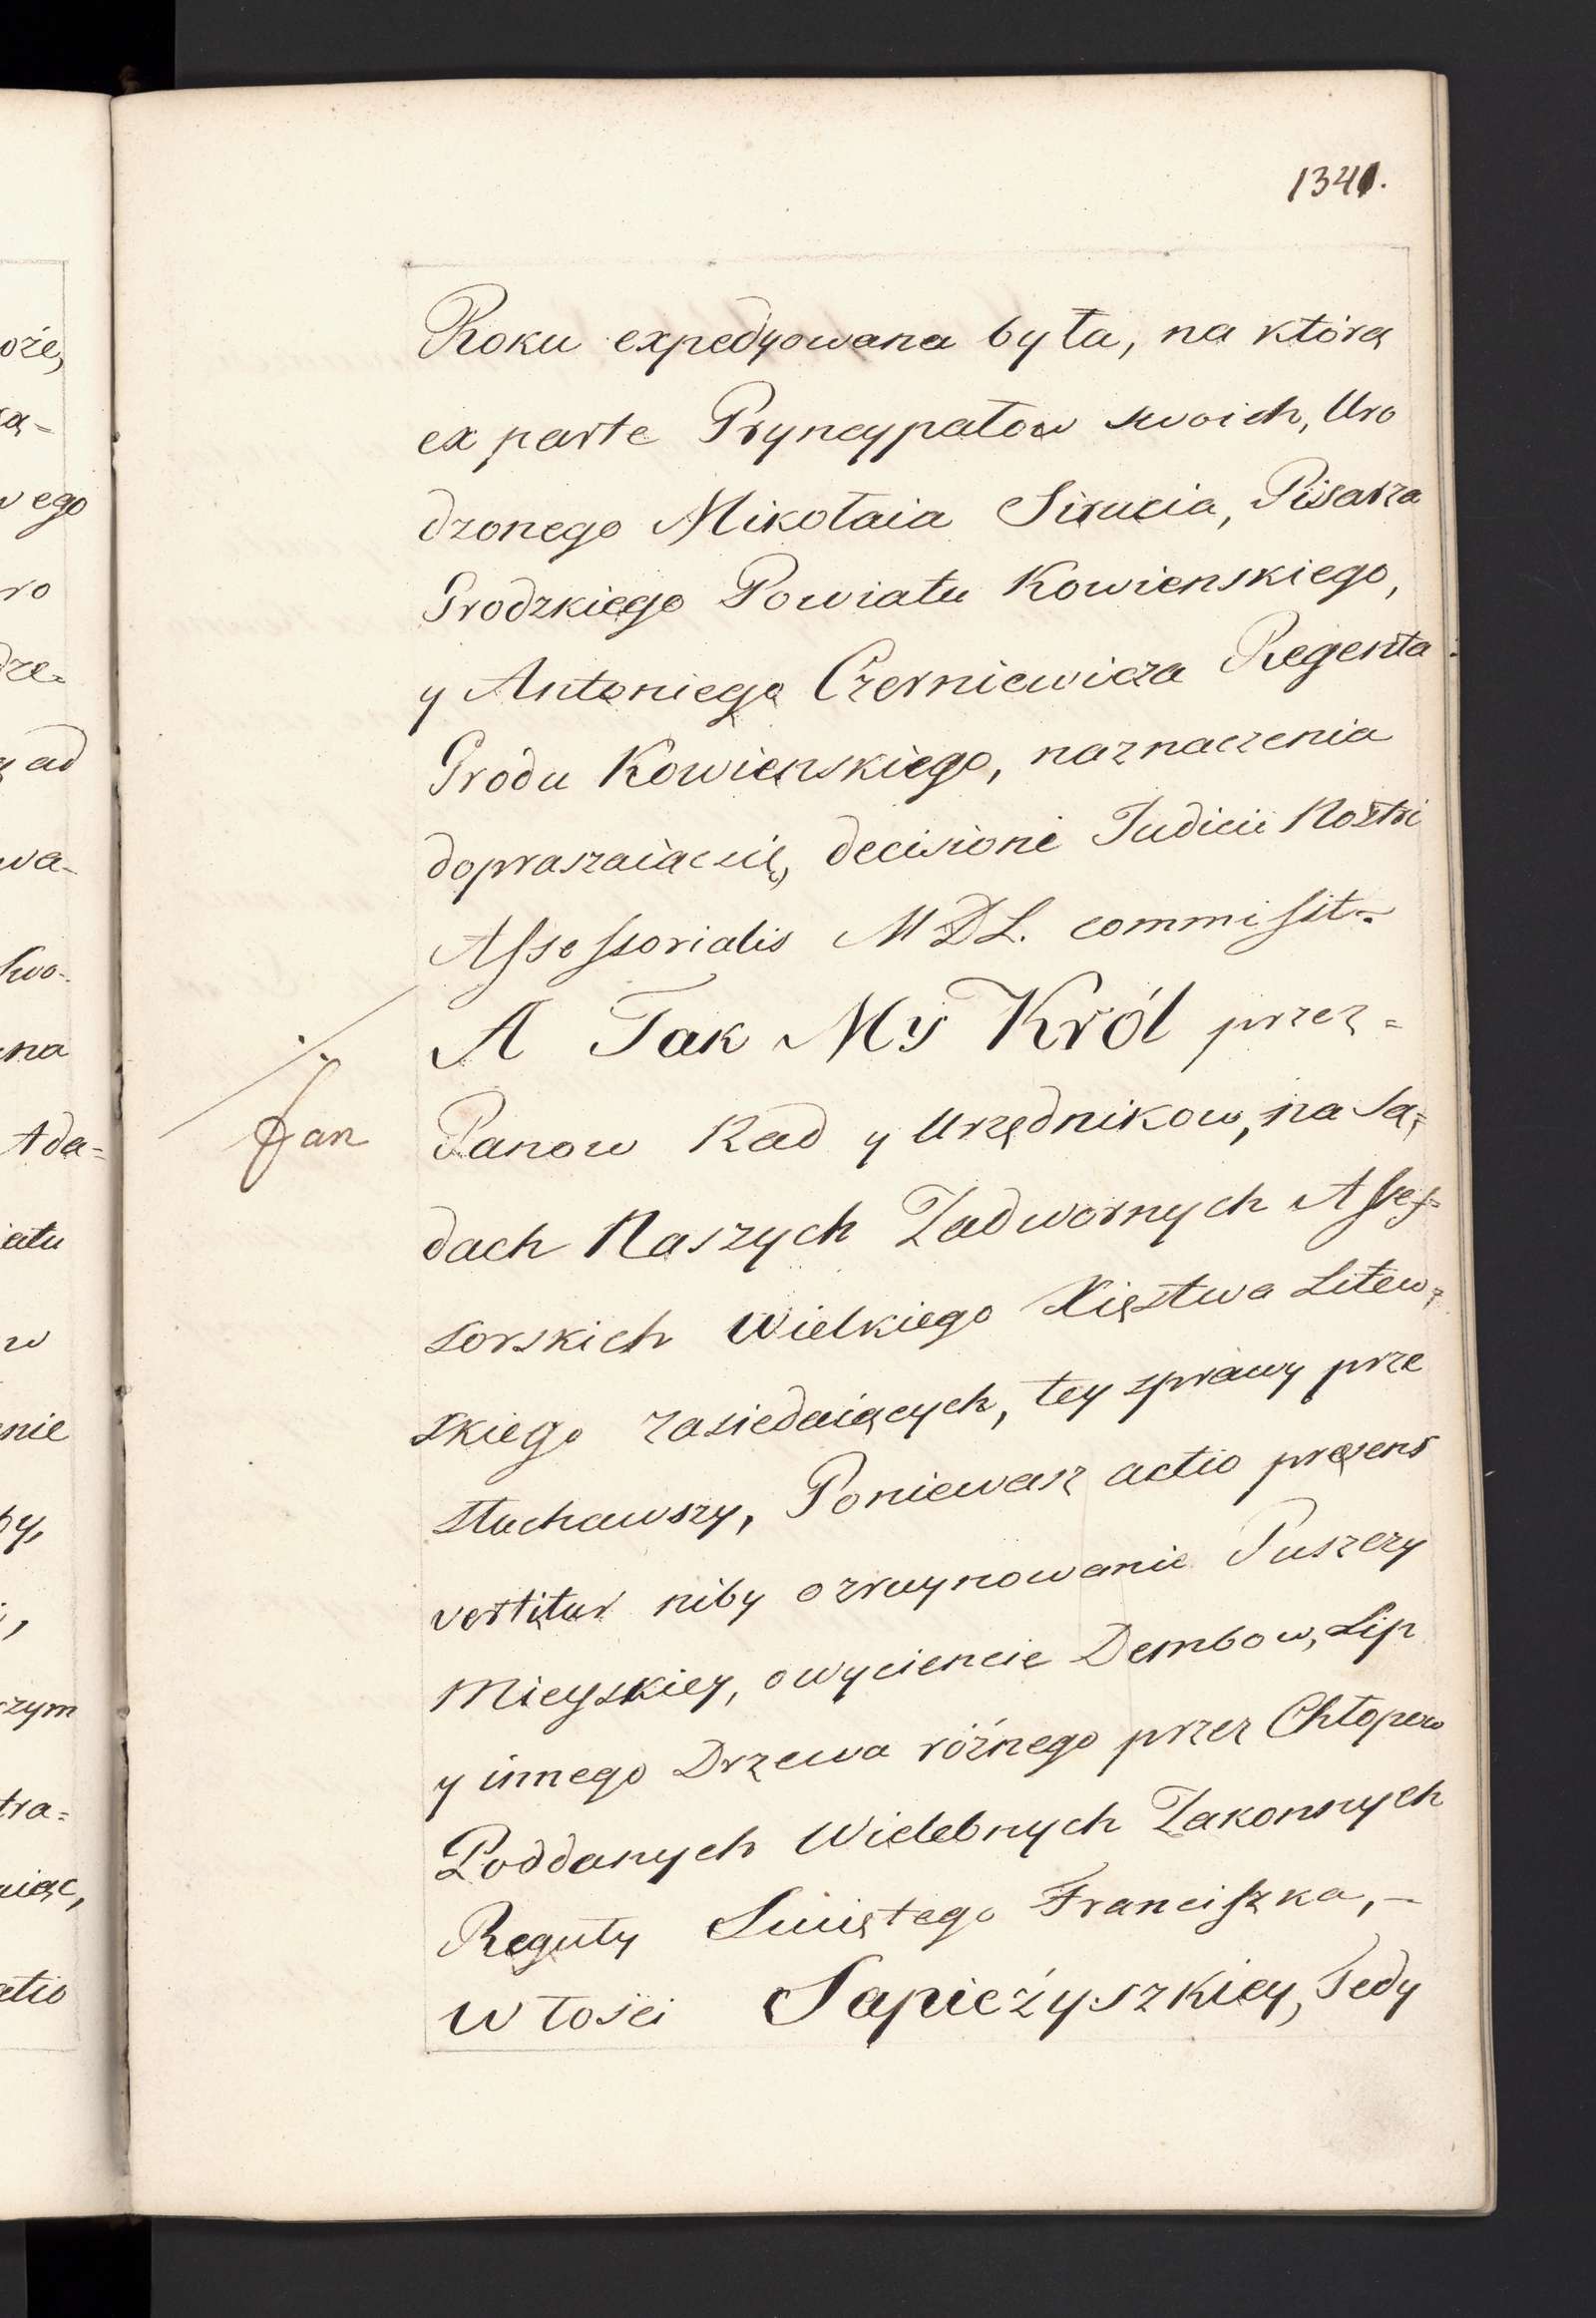 1341.
Roku expedyowana była, na którą
ex parte Pryncypałow swoich, Uro
dzonego Mikołaia Sirucia, Pisarza
Grodzkiego Powiatu Kowienskiego,
y Antoniego Czerniewicza Regenta
Grodu Kowienskiego, naznaczenia
dopraszaiąc się, decisione Judicii Nostri
Assessorialis MDL. commissit.
A Tak My Król przez =
Jan
Panow Rad y Urzędnikow, na Są=
dach Naszych Zadwornych Asses=
sorskich Wielkiego Xięstwa Litew=
skiego zasiedaiących, tey sprawy prze
słuchawszy, Poniewasz actio pręsens
vertitur niby o zruynowanie Puszczy
Mieyskiey, o wyciencie Dembow, Lip
y innego Drzewa różnego przez Chłopow
Poddanych Wielebnych Zakonnych
Reguły Swiętego Franciszka, -
Włosci Sapieżyszkiey, Tedy
oże,
ą-
ego
ro
dze=
ad
wa-
Swo-
na
Ada=
iatu
w
nie
by,
szym
tra=
aiąc,
actio